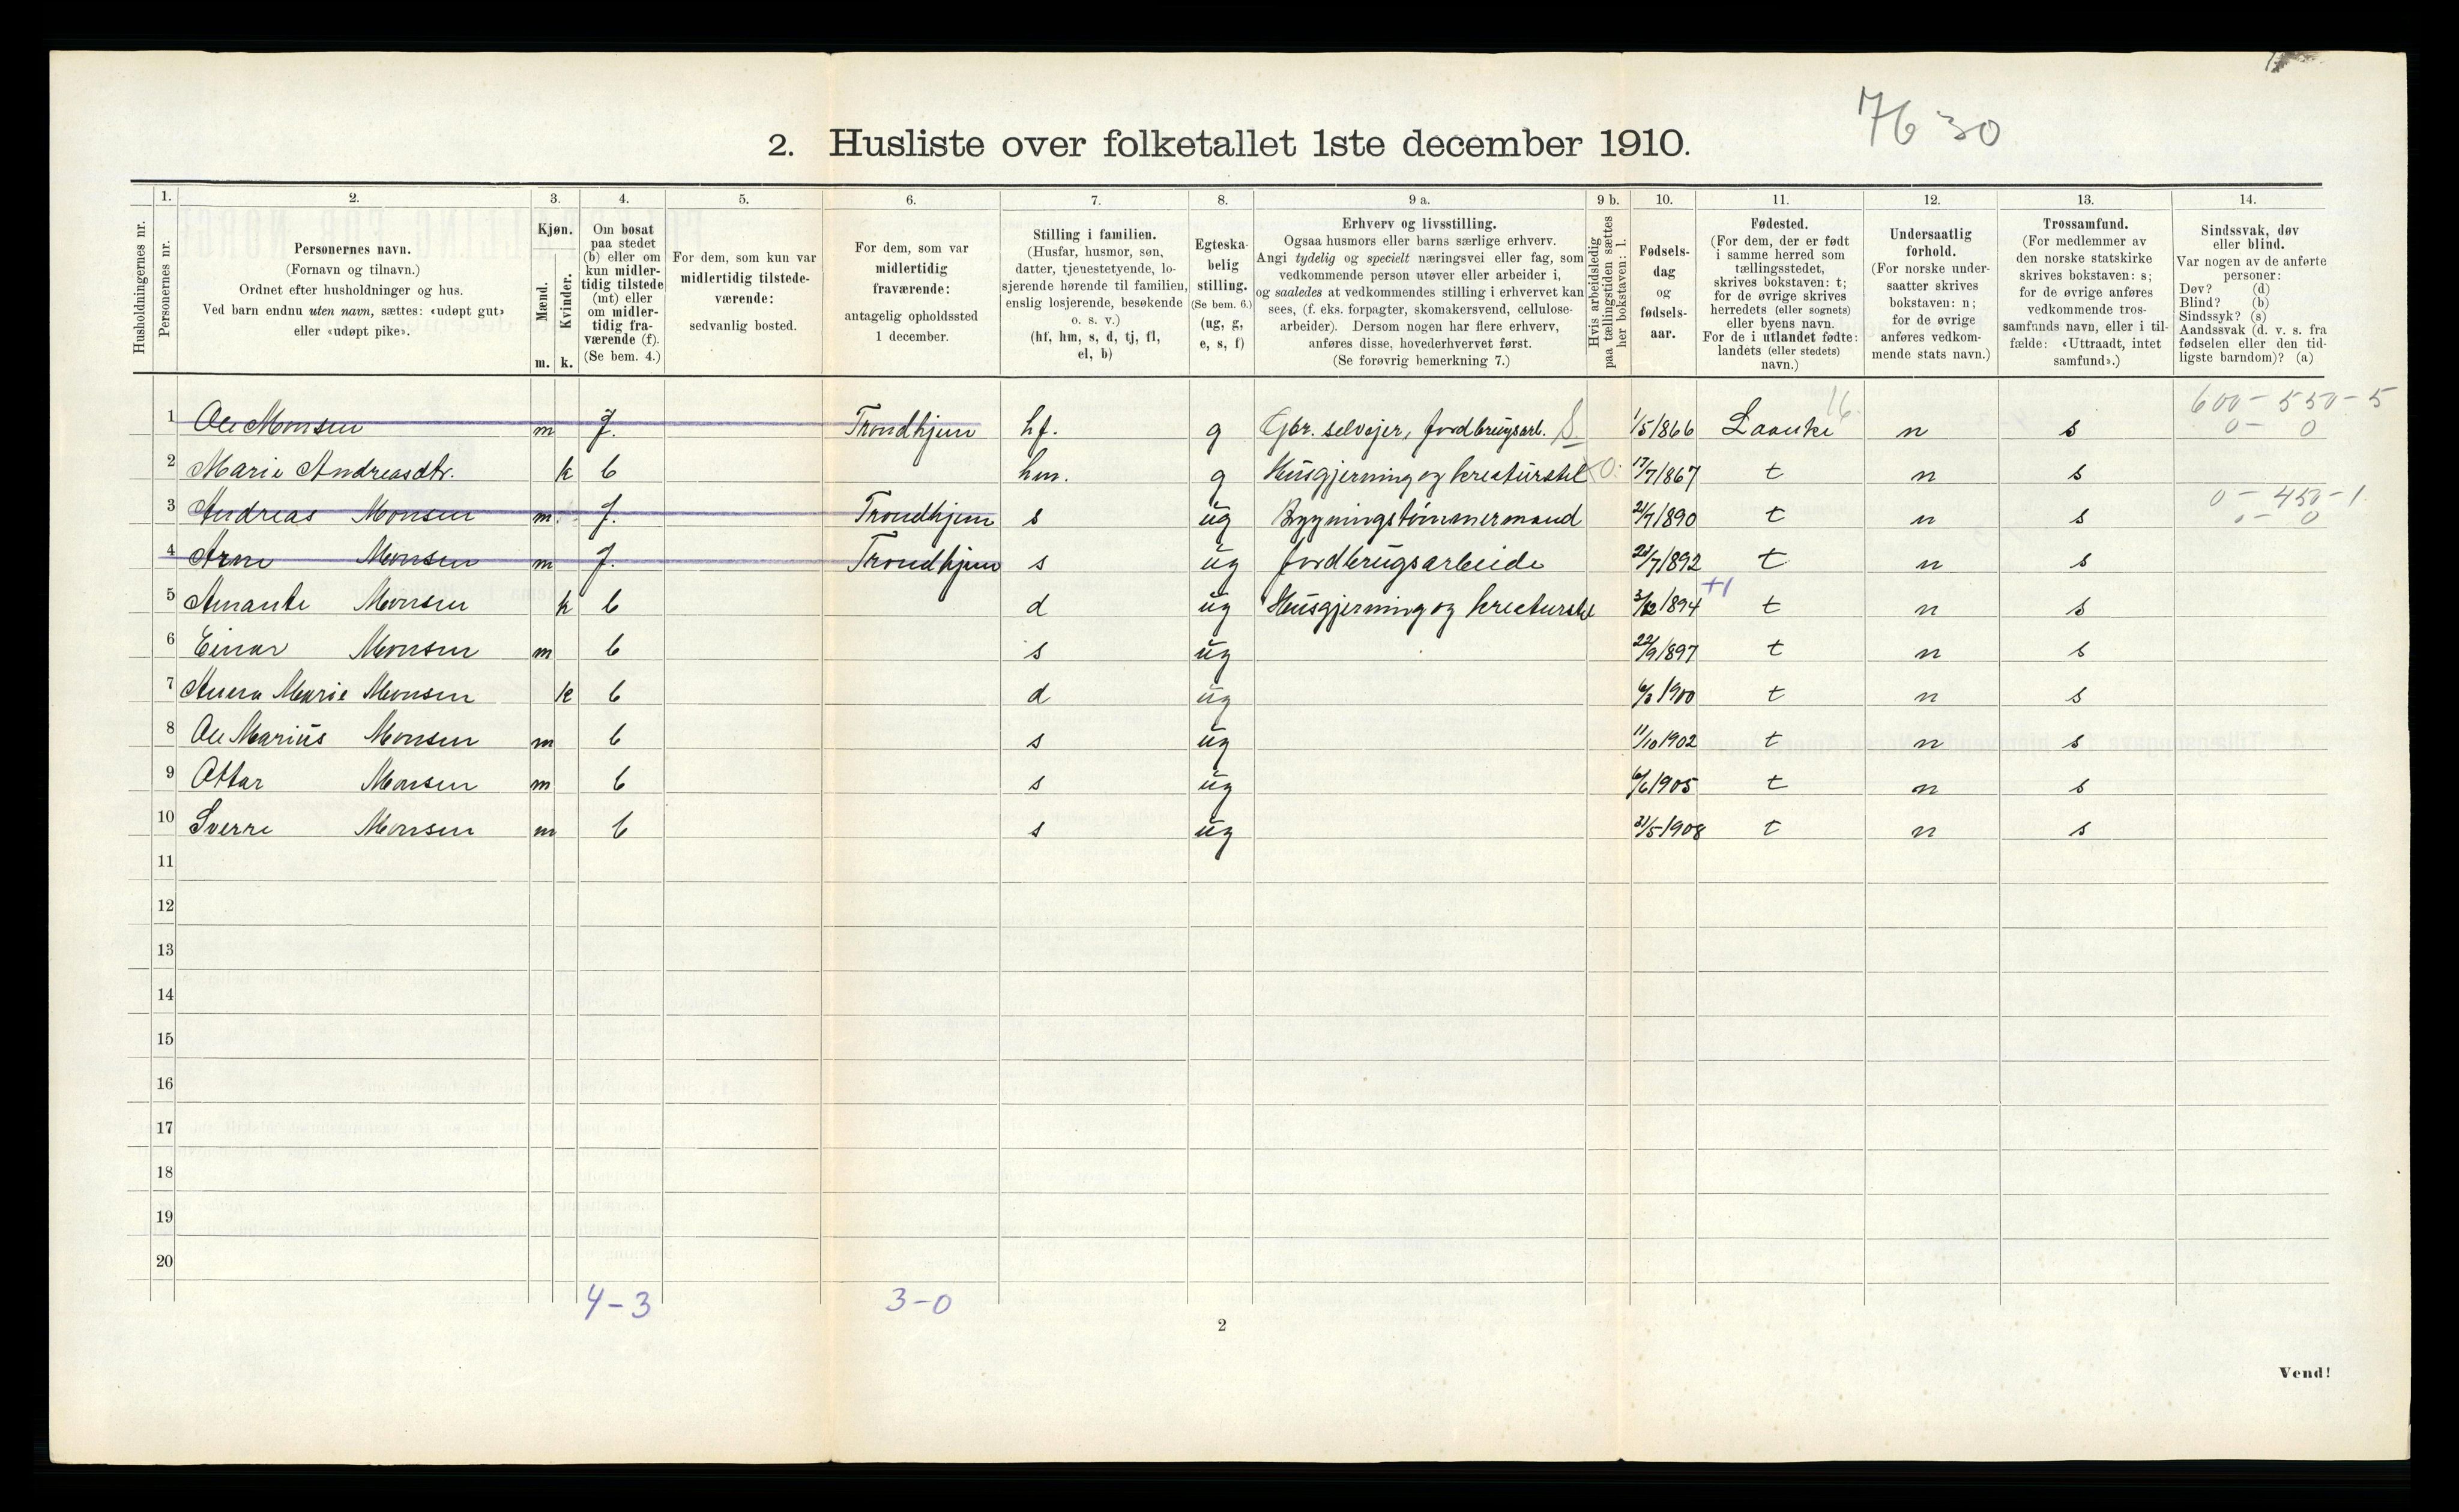 76 30
2. Husliste over folketallet 1ste december 1910.
Husholdningernes nr.
1. Personernes nr.
2. Personernes navn.
(Fornavn og tilnavn.)
Ordnet efter husholdninger og hus.
Ved barn endnu uten navn, sættes: «udøpt gut»
eller «udøpt pike».
3. Kjøn.
Mænd. m.
Kvinder. k.
4. Om bosat
paa stedet
(b) eller om
kun midler-
tidig tilstede
(mt) eller
om midler-
tidig fra-
værende (f).
(Se bem. 4.)
5. For dem, som kun var
midlertidig tilstede-
værende:
sedvanlig bosted.
6. For dem, som var
midlertidig
fraværende:
antagelig opholdssted
1 december.
7. Stilling i familien.
(Husfar, husmor, søn,
datter, tjenestetyende, lo-
sjerende hørende til familien,
enslig losjerende, besøkende
o. s. v.)
(hf, hm, s, d, tj, fl,
el, b)
8. Egteska-
belig
stilling.
(Se bem. 6.)
(ug, g,
e, s, f)
9 a. Erhverv og livsstilling.
Ogsaa husmors eller barns særlige erhverv.
Angi tydelig og specielt næringsvei eller fag, som
vedkommende person utøver eller arbeider i,
og saaledes at vedkommendes stilling i erhvervet kan
sees, (f. eks. forpagter, skomakersvend, cellulose-
arbeider). Dersom nogen har flere erhverv,
anføres disse, hovederhvervet først.
(Se forøvrig bemerkning 7.)
9 b. Hvis arbeidsledig
paa tællingstiden sættes
her bokstaven: l.
10. Fødsels-
dag
og
fødsels-
aar.
11. Fødested.
(For dem, der er født
i samme herred som
tællingsstedet,
skrives bokstaven: t;
for de øvrige skrives
herredets (eller sognets)
eller byens navn.
For de i utlandet fødte:
landets (eller stedets)
navn.)
12. Undersaatlig
forhold.
(For norske under-
saatter skrives
bokstaven: n;
for de øvrige
anføres vedkom-
mende stats navn.)
13. Trossamfund.
(For medlemmer av
den norske statskirke
skrives bokstaven: s;
for de øvrige anføres
vedkommende tros-
samfunds navn, eller i til-
fælde: «Uttraadt, intet
samfund».)
14. Sindssvak, døv
eller blind.
Var nogen av de anførte
personer:
Døv? (d)
Blind? (b)
Sindssyk? (s)
Aandssvak (d. v. s. fra
fødselen eller den tid-
ligste barndom)? (a)
16 600 - 550 - 5
1 Ole Monsen m f. Trondhjem hf. g Gbr. selvejer, jordbrugsarb. S 1/5 1866 Laanke n s 0 - 0
2 Marie Andreasdtr. k b hm. g Husgjerning og kreaturstel 0 17/7 1867 t n s
0 - 450 - 1
3 Andreas Monsen m. f. Trondhjem s ug Bygningstømmermand 21/7 1890 t n s 0 - 0
4 Arne Monsen m f. Trondhjem s ug Jordbrugsarbeide 22/7 1892 t n s
+1
5 Amanda Monsen k b d ug Husgjerning og kreaturstel 3/12 1894 t n s
6 Einar Monsen m b s ug 22/9 1897 t n s
7 Anna Marie Monsen k b d ug 6/3 1900 t n s
8 Ole Marius Monsen m b s ug 11/10 1902 t n s
9 Ottar Monsen m b s ug 6/6 1905 t n s
10 Sverre Monsen m b s ug 31/5 1908 t n s
11
12
13
14
15
16
17
18
19
20
4-3 3-0
2
Vend!